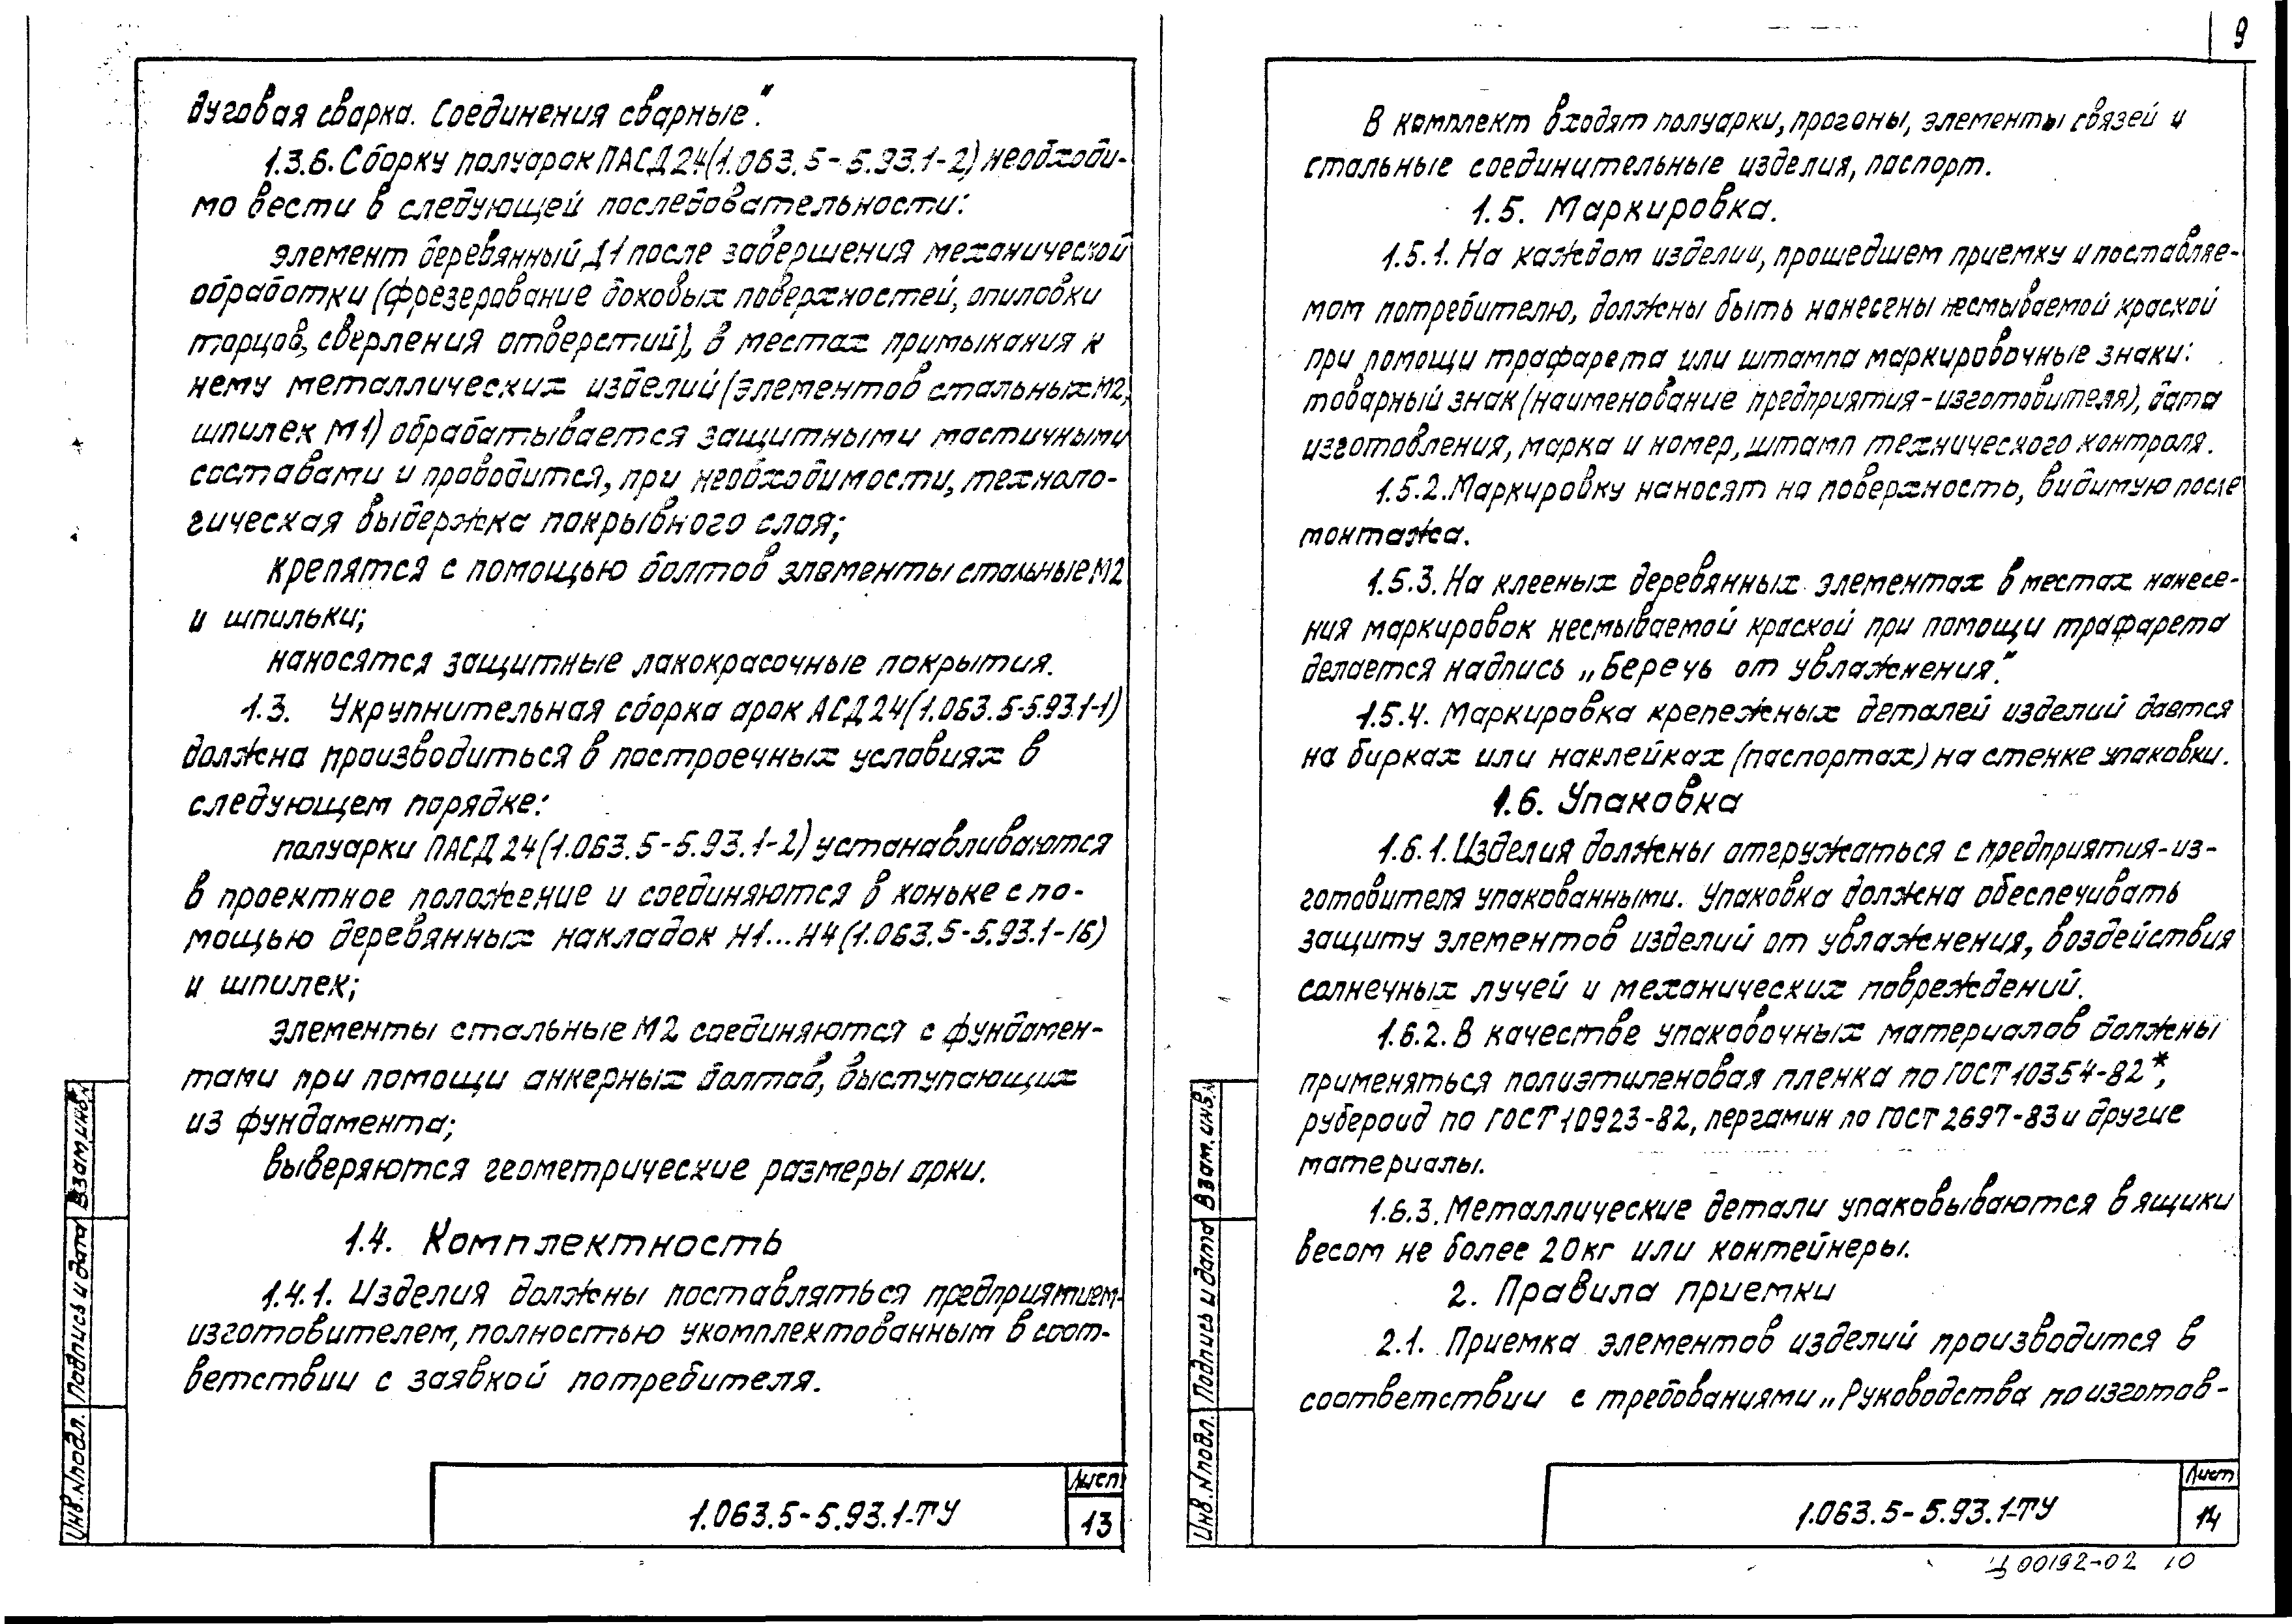 дуговая сварка. Соединения сварные".
1.3.6. Сборку полуарок ПАСД24(1.063.5-5.93.1-2) необходи-
мо вести в следующей последовательности:
элемент деревянный Д1 после завершения механической
обработки (фрезерование боковых поверхностей, опиловки
торцов, сверления отверстий), в местах примыкания к
нему металлических изделий (элементов стальных М2,
шпилек М1) обрабатывается защитными мастичными
составами и проводится, при необходимости, техноло-
гическая выдержка покрывного слоя;
крепятся с помощью болтов элементы стальные М2
и шпильки;
наносятся защитные лакокрасочные покрытия.
1.3. Укрупнительная сборка арок АСД24(1.063.5-5.93.1-1)
должна производиться в построечных условиях в
следующем порядке:
полуарки ПАСД24(1.063.5-5.93.1-2) устанавливаются
в проектное положение и соединяются в коньке с по-
мощью деревянных накладок Н1...Н4(1.063.5-5.93.1-16)
и шпилек;
элементы стальные М2 соединяются с фундамен-
тами при помощи анкерных болтов, выступающих
из фундамента;
выверяются геометрические размеры арки.
1.4. Комплектность
1.4.1. Изделия должны поставляться предприятием-
изготовителем, полностью укомплектованным в соот-
ветствии с заявкой потребителя.
Взам.инв.N
Подпись и дата
Инв.Nподл.
1.063.5-5.93.1-ТУ
Лист
13
9
В комплект входят полуарки, прогоны, элементы связей и
стальные соединительные изделия, паспорт.
1.5. Маркировка.
1.5.1. На каждом изделии, прошедшем приемку и поставляе-
мом потребителю, должны быть нанесены несмываемой краской
при помощи трафарета или штампа маркировочные знаки:
товарный знак (наименование предприятия-изготовителя), дата
изготовления, марка и номер, штамп технического контроля.
1.5.2. Маркировку наносят на поверхность, видимую после
монтажа.
1.5.3. На клееных деревянных элементах в местах нанесе-
ния маркировок несмываемой краской при помощи трафарета
делается надпись „Беречь от увлажнения".
1.5.4. Маркировка крепежных деталей изделий дается
на бирках или наклейках (паспортах) на стенке упаковки.
1.6. Упаковка
1.6.1. Изделия должны отгружаться с предприятия-из-
готовителя упакованными. Упаковка должна обеспечивать
защиту элементов изделий от увлажнения, воздействия
солнечных лучей и механических повреждений.
1.6.2. В качестве упаковочных материалов должны
применяться полиэтиленовая пленка по ГОСТ 10354-82*,
рубероид по ГОСТ 10923-82, пергамин по ГОСТ 2697-83 и другие
материалы.
1.6.3. Металлические детали упаковываются в ящики
весом не более 20кг или контейнеры.
2. Правила приемки
2.1. Приемка элементов изделий производится в
соответствии с требованиями „Руководства по изготов-
Взам.инв.N
Подпись и дата
Инв.Nподл.
1.063.5-5.93.1-ТУ
Лист
14
Ц00192-02 10